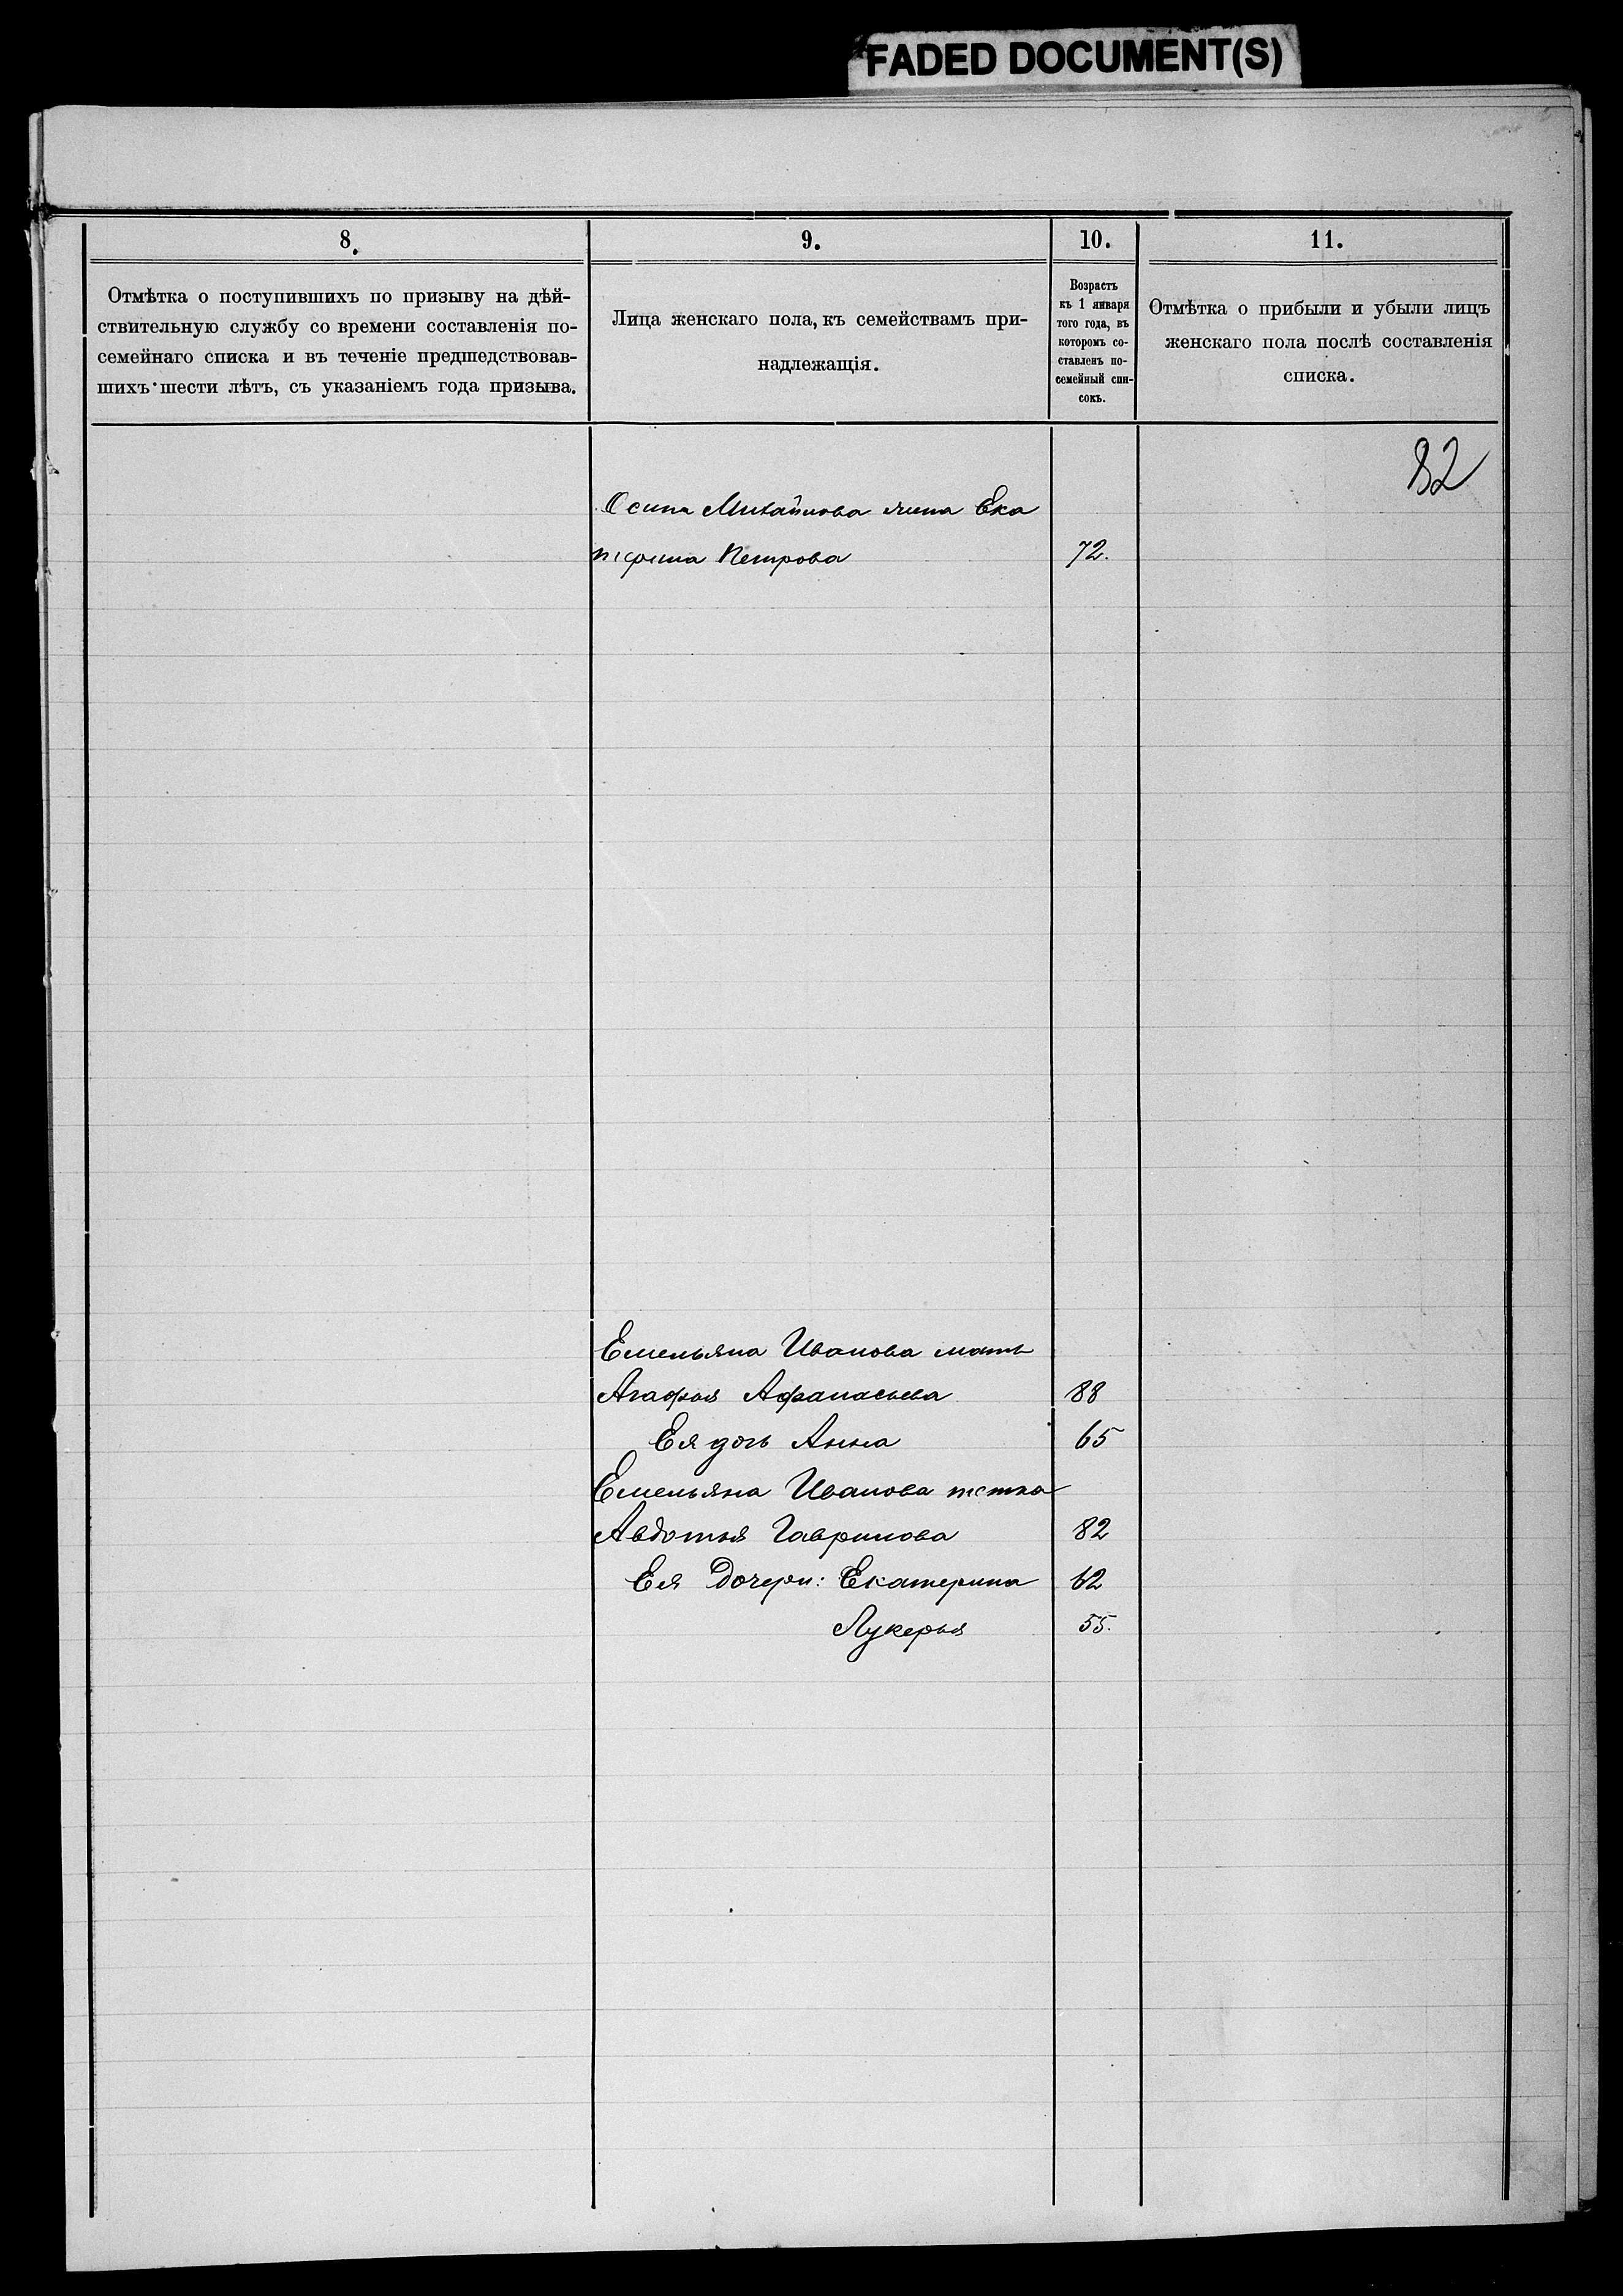 FADED DOCUMENT(S)
8.
9.
10.
11.
Отмѣтка о поступившихъ по призыву на дѣй-
ствительную службу со времени составленія по-
семейнаго списка и въ теченіе предшедствовав-
шихъ шести лѣтъ, съ указаніемъ года призыва.
Лица женскаго пола, къ семействамъ при-
надлежащія.
Возрастъ
къ 1 января
того года, въ
которомъ со-
ставленъ по-
семейный спи-
сокъ.
Отмѣтка о прибыли и убыли лицъ
женскаго пола послѣ составленія
списка.
82
Осипа Михайлова жена Ека
терина Петрова 72.
Емельяна Иванова мать
Агафья Афанасьева 88
Ея дочь Анна 65
Емельяна Иванова тетка
Авдотья Гаврилова 82
Ея Дочери: Екатерина 62
Лукерья 55.